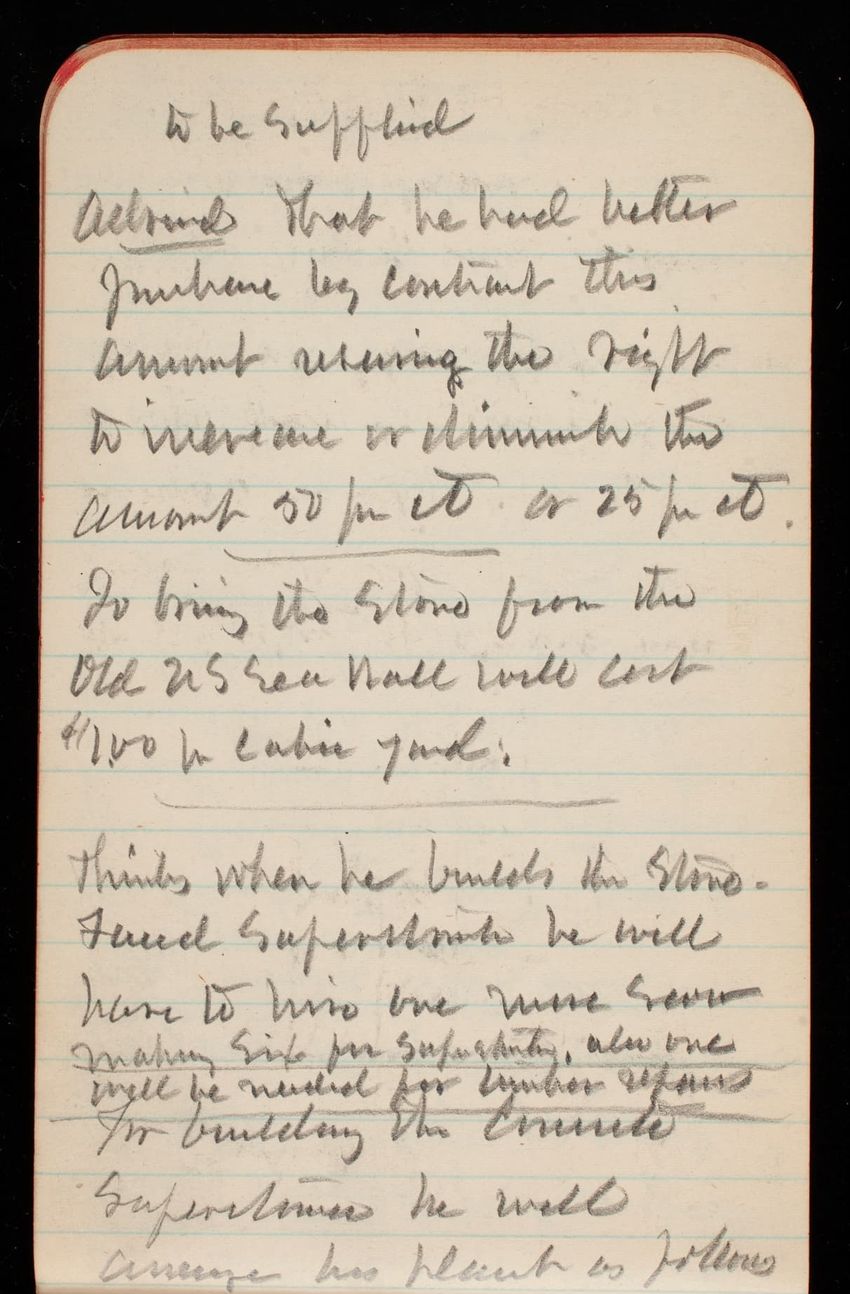 to be supplied
Advised that he had better
purchase by contract this
amount reserving the right
to increase or diminish the
amount 50 pr ct or 25 pr ct.
To bring the Stone from the
Old US Sea Wall will cost
$1.00 pr cubic yard.
Thinks when he builds the Stone-
faced Superstructure he will
have to hire one more Scow
making Six for Superstructure, also one
will be needed for timber repairs
For building the Concrete
Superstructure he will
arrange his plant as follows